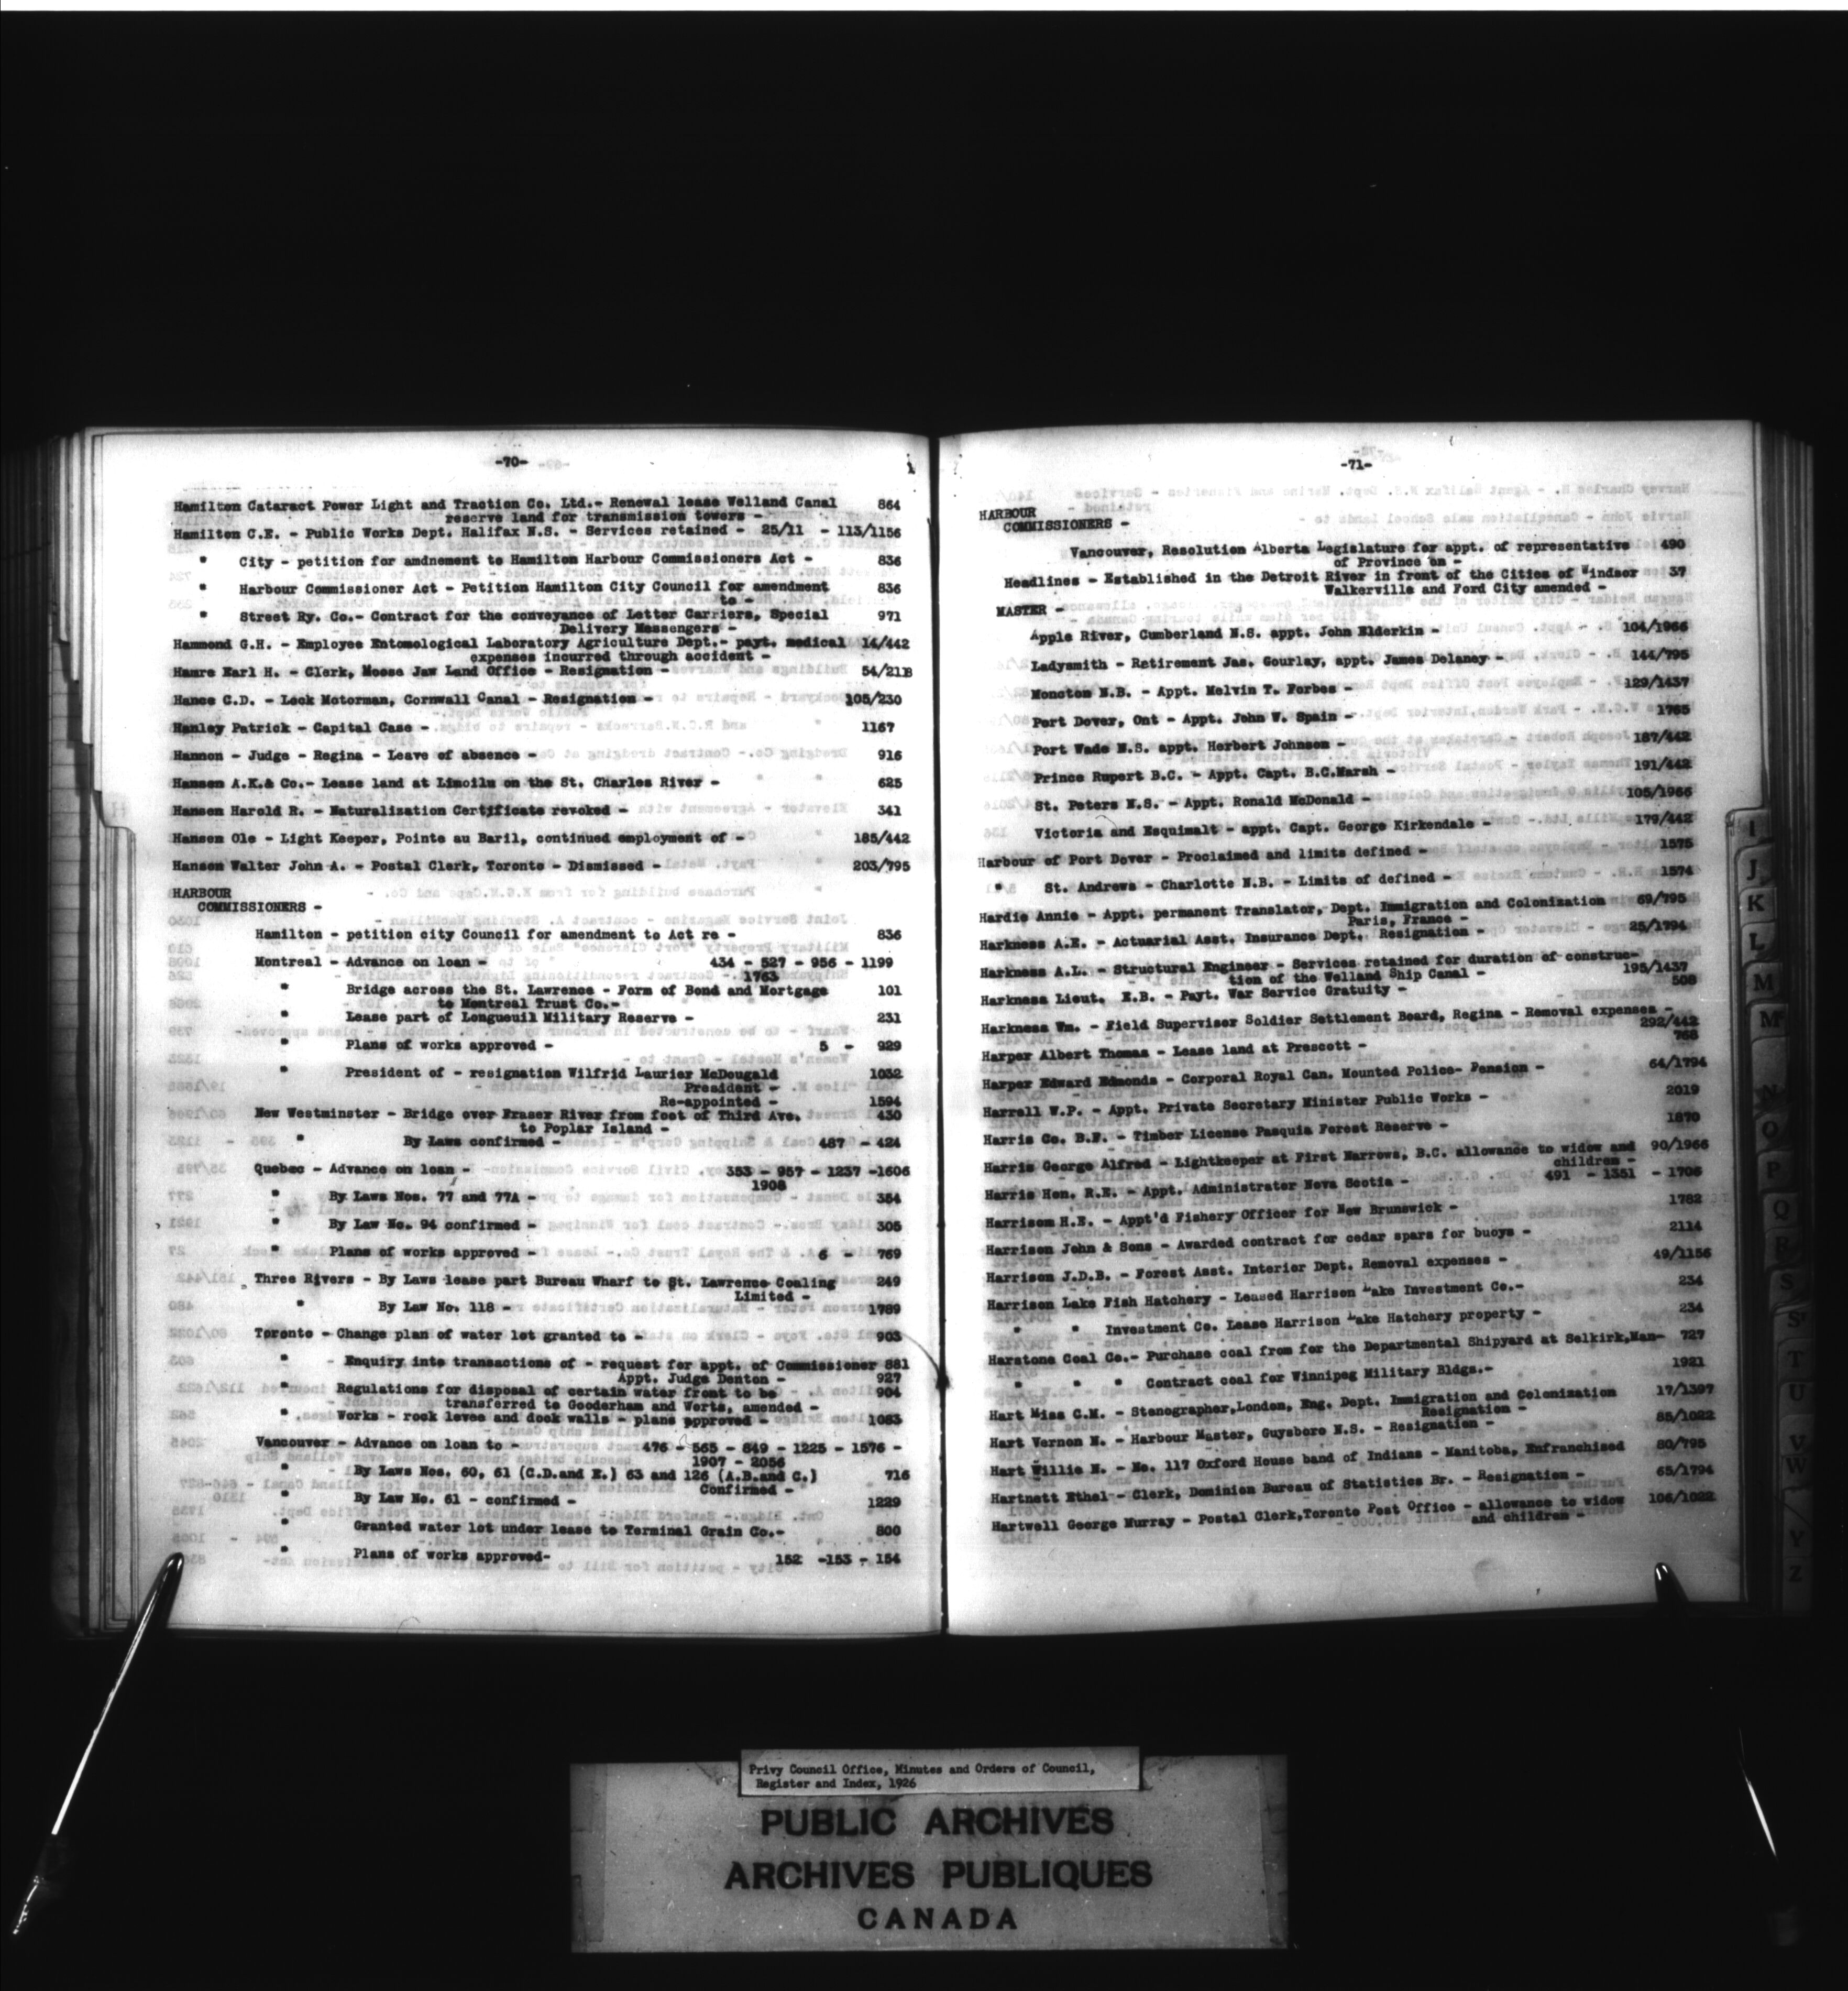 -70-
Hamilton Cataract Power Light and Traction Co. Ltd.- Renewal lease Welland Canal 864
reserve land for transmission towers -
Hamilton C.E. - Public Works Dept. Halifax N.S. - Services retained - 25/11 - 113/1156
" City - petition for amdnement to Hamilton Harbour Commissioners Act - 836
" Harbour Commissioner Act - Petition Hamilton City Council for amendment 836
to -
" Street Ry. Co.- Contract for the conveyance of Letter Carriers, Special 971
Delivery Messengers -
Hammond G.H. - Employee Entomological Laboratory Agriculture Dept.- payt. medical 14/442
expenses incurred through accident -
Hamre Earl H. - Clerk, Moose Jaw Land Office - Resignation - 54/2118
Hance C.D. - Lock Motorman, Cornwall Canal - Resignation - 105/230
Hanley Patrick - Capital Case - 1167
Hannon - Judge - Regina - Leave of absence - 916
Hansen A.K.& Co.- Lease land at Limoilu on the St. Charles River - 625
Hansen Harold R. - Naturalization Certificate revoked - 341
Hansen Ole - Light Keeper, Pointe au Baril, continued employment of - 185/442
Hansen Walter John A. - Postal Clerk, Toronto - Dismissed - 203/795
HARBOUR
COMMISSIONERS -
Hamilton - petition city Council for amendment to Act re - 836
Montreal - Advance on loan - 434 - 527 - 956 - 1199
1763
" Bridge across the St. Lawrence - Form of Bond and Mortgage 101
to Montreal Trust Co.-
" Lease part of Longueuil Military Reserve - 231
" Plans of works approved - 5 - 929
" President of - resignation Wilfrid Laurier McDougald 1032
President -
Re-appointed - 1594
New Westminster - Bridge over Fraser River from foot of Third Ave. 430
to Poplar Island -
" By Laws confirmed - 487 - 424
Quebec - Advance on loan - 353 - 957 - 1237 -1606
1908
" By Laws Nos. 77 and 77A - 354
" By Law No. 94 confirmed - 305
" Plans of works approved - 6 - 769
Three Rivers - By Laws lease part Bureau Wharf to St. Lawrence Coaling 249
Limited -
" By Law No. 118 - 1789
Toronto - Change plan of water lot granted to - 903
" Enquiry into transactions of - request for appt. of Commissioner 881
Appt. Judge Denton - 927
" Regulations for disposal of certain water front to be 904
transferred to Gooderham and Worts, amended -
" Works - rock levee and dock walls - plans approved - 1083
Vancouver - Advance on loan to - 476 - 565 - 849 - 1225 - 1576 -
1907 - 2056
" By Laws Nos. 60, 61 (C.D.and E.) 63 and 126 (A.B.and C.) 716
Confirmed -
" By Law No. 61 - confirmed - 1229
" Granted water lot under lease to Terminal Grain Co.- 800
" Plans of works approved- 152 -153 - 154
-71-
HARBOUR
COMMISSIONERS -
Vancouver, Resolution Alberta Legislature for appt. of representative 490
of Province on -
Headlines - Established in the Detroit River in front of the Cities of Windsor 37
Walkerville and Ford City amended -
MASTER -
Apple River, Cumberland N.S. appt. John Elderkin - 104/1966
Ladysmith - Retirement Jas. Gourlay, appt. James Delaney - 144/795
Moncton N.B. - Appt. Melvin T. Forbes - 129/1437
Port Dover, Ont - Appt. John W. Spain - 1765
Port Wade N.S. appt. Herbert Johnson - 187/442
Prince Rupert B.C. - Appt. Capt. B.C.Marsh - 191/442
St. Peters N.S. - Appt. Ronald McDonald - 105/1966
Victoria and Esquimalt - appt. Capt. George Kirkendale - 179/442
Harbour of Port Dover - Proclaimed and limits defined - 1575
" St. Andrews - Charlotte N.B. - Limits of defined - 1574
Hardie Annie - Appt. permanent Translator, Dept. Immigration and Colonization 69/795
Paris, France -
Harkness A.E. - Actuarial Asst. Insurance Dept. Resignation - 25/1794
Harkness A.L. - Structural Engineer - Services retained for duration of construc-
tion of the Welland Ship Canal - 195/1437
Harkness Lieut. E.B. - Payt. War Service Gratuity - 508
Harkness Wm. - Field Supervisor Soldier Settlement Board, Regina - Removal expenses -
292/442
Harper Albert Thomas - Lease land at Prescott - 768
Harper Edward Edmonds - Corporal Royal Can. Mounted Police- Pension - 64/1794
Harrell W.P. - Appt. Private Secretary Minister Public Works - 2019
Harris Co. B.F. - Timber License Pasquia Forest Reserve - 1870
Harris George Alfred - Lightkeeper at First Narrows, B.C. allowance to widow and 90/1966
children -
Harris Hon. R.E. - Appt. Administrator Nova Scotia - 491 - 1351 - 1706
Harrison H.E. - Appt'd Fishery Officer for New Brunswick - 1782
Harrison John & Sons - Awarded contract for cedar spars for buoys - 2114
Harrison J.D.B. - Forest Asst. Interior Dept. Removal expenses - 49/1156
Harrison Lake Fish Hatchery - Leased Harrison Lake Investment Co.- 234
" " Investment Co. Lease Harrison Lake Hatchery property - 234
Harstone Coal Co.- Purchase coal from for the Departmental Shipyard at Selkirk,Man- 727
" " " Contract coal for Winnipeg Military Bldgs.- 1921
Hart Miss C.M. - Stenographer,London, Eng. Dept. Immigration and Colonization 17/1397
Resignation -
Hart Vernon N. - Harbour Master, Guysboro N.S. - Resignation - 85/1022
Hart Willie N. - No. 117 Oxford House band of Indians - Manitoba, Enfranchised 80/795
Hartnett Ethel - Clerk, Dominion Bureau of Statistics Br. - Resignation - 65/1794
Hartwell George Murray - Postal Clerk,Toronto Post Office - allowance to widow 106/1022
and children -
I
J
K
L
M
Mc
N
O
P
Q
R
S
S
T
U
V
W
Y
Z
Privy Council Office, Minutes and Orders of Council,
Register and Index, 1926
PUBLIC ARCHIVES
ARCHIVES PUBLIQUES
CANADA